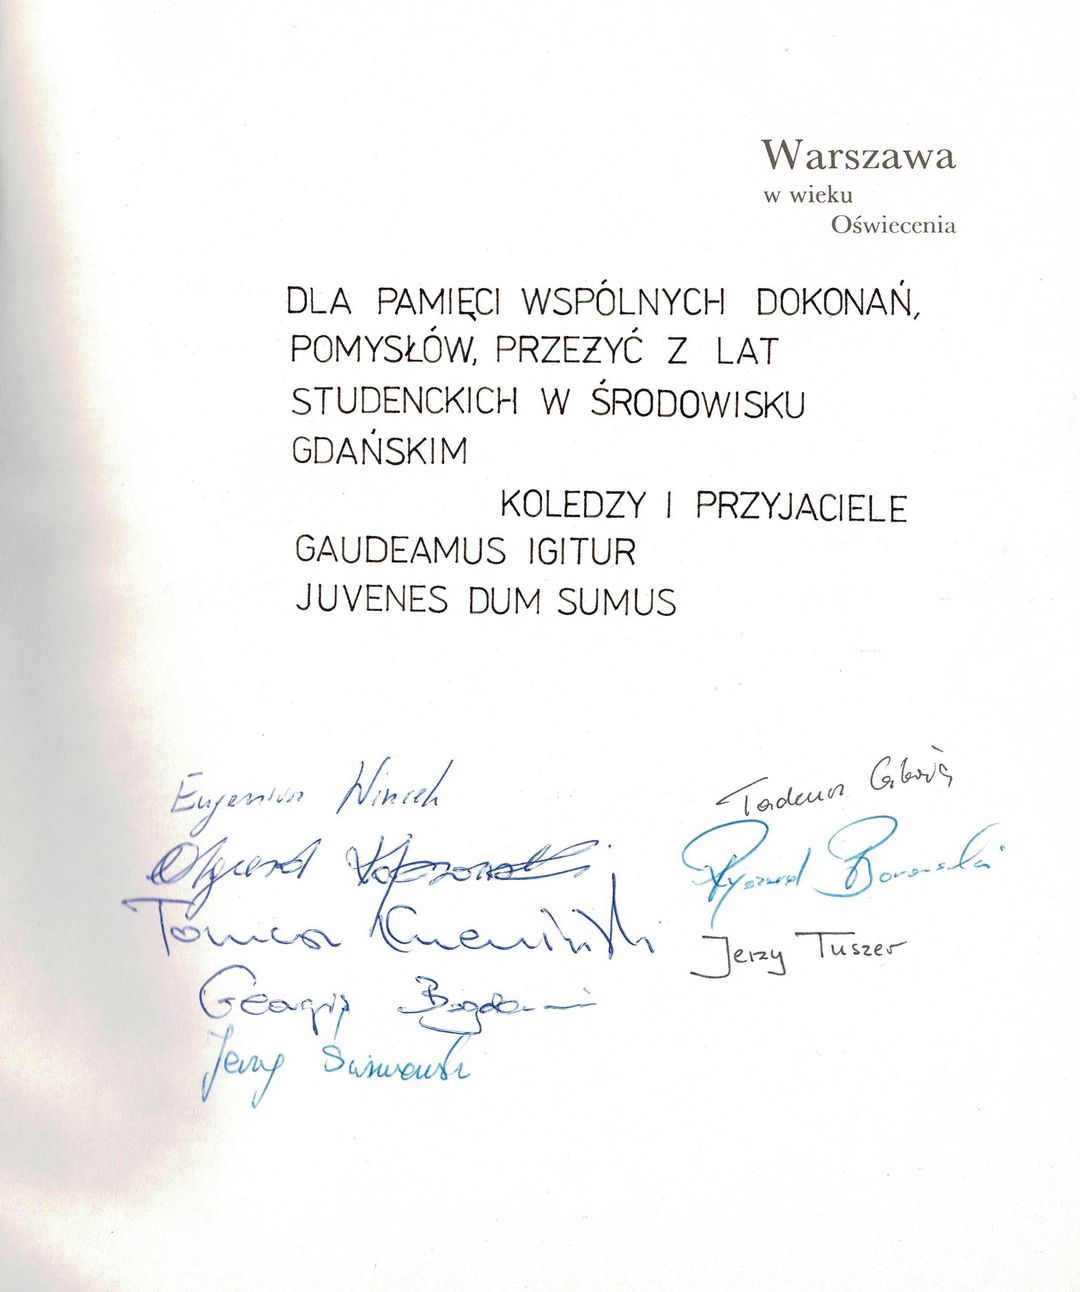 Warszawa
w wieku
Oświecenia
DLA PAMIĘCI WSPÓLNYCH DOKONAŃ,
POMYSŁÓW, PRZEŻYĆ Z LAT
STUDENCKICH W ŚRODOWISKU
GDAŃSKIM
KOLEDZY I PRZYJACIELE
GAUDEAMUS IGITUR
JUVENES DUM SUMUS
Eugeniusz
Tadeusz
Olgierd
Ryszard Borowski
Tomasz
Jerzy Tuszer
Jerzy